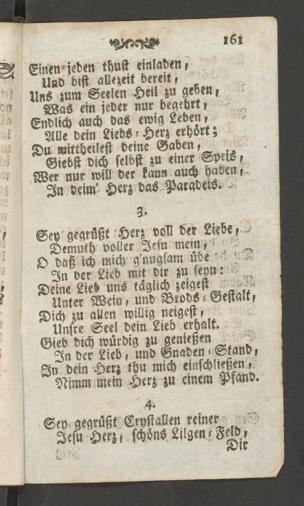 161
Einen jeden thust einladen,
Und bist allezeit bereit,
Uns zum Seelen Heil zu geben,
Was ein jeder nur begehrt,
Endlich auch das ewig Leben,
Alle dein Liebs-Herz erhört;
Du mittheilest deine Gaben,
Giebst dich selbst zu einer Speis,
Wer nur will der kann auch haben,
In deim' Herz das Paradeis.
3.
Sey gegrüßt Herz voll der Liebe,
Demuth voller Jesu mein,
O daß ich mich g'nugsam übe
In der Lieb mit dir zu seyn:
Deine Lieb uns täglich zeigest
Unter Wein, und Brods-Gestalt,
Dich zu allen willig neigest,
Unsre Seel dein Lieb erhalt.
Gieb dich würdig zu genießen
In der Lieb, und Gnaden-Stand,
In dein Herz thu mich einschließen,
Nimm mein Herz zu einem Pfand.
4.
Sey gegrüßt Crystallen reiner
Jesu Herz, schöns Lilgen-Feld,
Dir